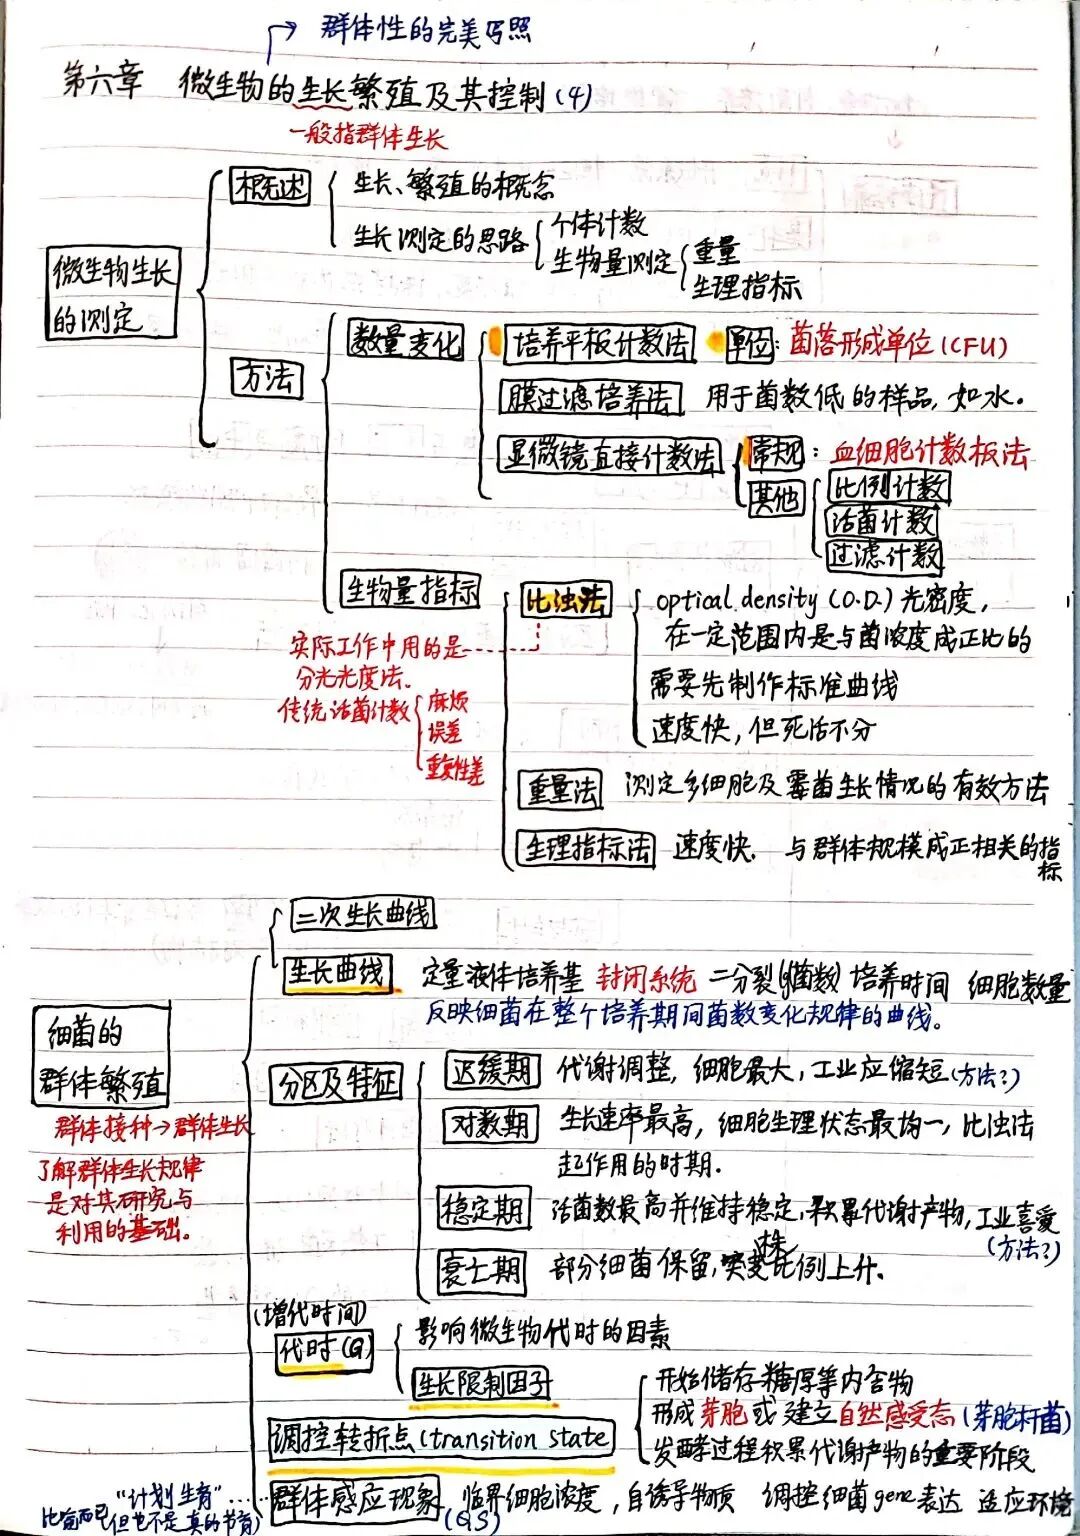 群体性的完美写照
第六章 微生物的生长繁殖及其控制(4)
一般指群体生长
微生物生长
的测定
概述
生长、繁殖的概念
生长测定的思路
个体计数
生物量测定
重量
生理指标
方法
数量变化
培养平板计数法 单位：菌落形成单位(CFU)
膜过滤培养法 用于菌数低的样品，如水。
显微镜直接计数法
常规：血细胞计数板法
其他
比例计数
活菌计数
过滤计数
生物量指标
比浊法
optical density (O.D.) 光密度，
在一定范围内是与菌浓度成正比的
需要先制作标准曲线
速度快，但死活不分
实际工作中用的是
分光光度法.
传统活菌计数
麻烦
误差
重复性差
重量法 测定多细胞及霉菌生长情况的有效方法
生理指标法 速度快. 与群体规模成正相关的指
标
二次生长曲线
生长曲线 定量液体培养基 封闭系统 二分裂(lg菌数) 培养时间 细胞数量
反映细菌在整个培养期间菌数变化规律的曲线。
细菌的
群体繁殖
群体接种→群体生长
了解群体生长规律
是对其研究与
利用的基础.
分区及特征
迟缓期 代谢调整，细胞最大，工业应缩短(方法?)
对数期 生长速率最高，细胞生理状态最均一，比浊法
起作用的时期.
稳定期 活菌数最高并维持稳定，积累代谢产物，工业喜爱
(方法?)
衰亡期 部分细菌保留，突变株比例上升.
(增代时间)
代时(G)
影响微生物代时的因素
生长限制因子
调控转折点(transition state
开始储存糖原等内含物
形成芽胞或建立自然感受态(芽胞杆菌)
发酵过程积累代谢产物的重要阶段
"计划生育"……群体感应现象 临界细胞浓度，自诱导物质 调控细菌gene表达 适应环境
比喻而已(但也不是真的节育) (QS)